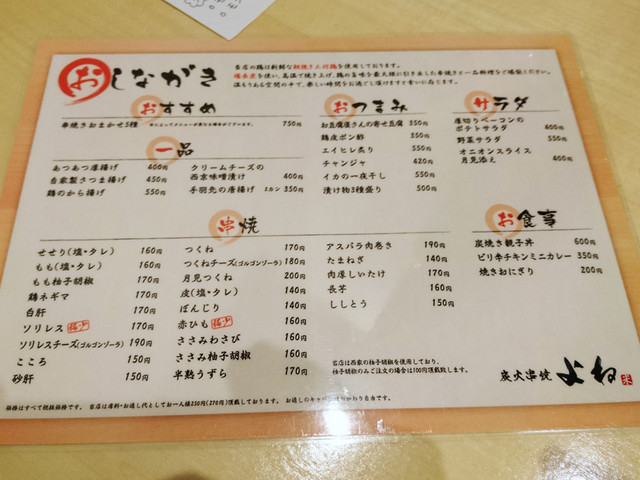 おしながき
当店の鶏は新鮮な朝挽き大山鶏を使用しております。
備長炭を使い、高温で焼き上げ、鶏の旨味を最大限に引き出した串焼きと一品料理をご堪能ください。
温もりある空間の中で、楽しい時間をお過ごし頂けますと幸いに存じます。
おすすめ
串焼きおまかせ5種 750円
一品
あつあつ厚揚げ 400円
自家製さつま揚げ 450円
鶏のから揚げ 550円
クリームチーズの
西京味噌漬け 400円
手羽先の唐揚げ 1カン 350円
おつまみ
お豆腐屋さんの寄せ豆腐 380円
鶏皮ポン酢 350円
エイヒレ炙り 450円
チャンジャ 420円
イカの一夜干し 550円
漬け物3種盛り 500円
サラダ
厚切りベーコンの
ポテトサラダ 600円
野菜サラダ 550円
オニオンスライス
月見添え 400円
串焼
せせり(塩・タレ) 160円
もも(塩・タレ) 160円
もも柚子胡椒 170円
鶏ネギマ 170円
白肝 170円
ソリレス 170円
ソリレスチーズ(ゴルゴンゾーラ) 190円
こころ 150円
砂肝 150円
つくね 170円
つくねチーズ(ゴルゴンゾーラ) 180円
月見つくね 200円
皮(塩・タレ) 140円
ぼんじり 140円
赤ひも 160円
ささみわさび 160円
ささみ柚子胡椒 160円
半熟うずら 170円
アスパラ肉巻き 190円
たまねぎ 140円
肉厚しいたけ 170円
長芋 160円
ししとう 150円
お食事
炭焼き親子丼 600円
ピリ辛チキンミニカレー 350円
焼きおにぎり 200円
当店は西家の柚子胡椒を使用しており、
柚子胡椒のみご注文の場合は100円頂戴致します。
炭火串焼 よね 米
価格はすべて税抜価格です。 当店は席料・お通し代としてお一人様250円(270円)頂戴しております。